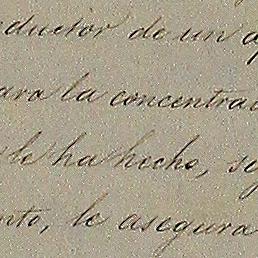 ductor de un
para la concentra
le ha hecho, se
nto, le asegura